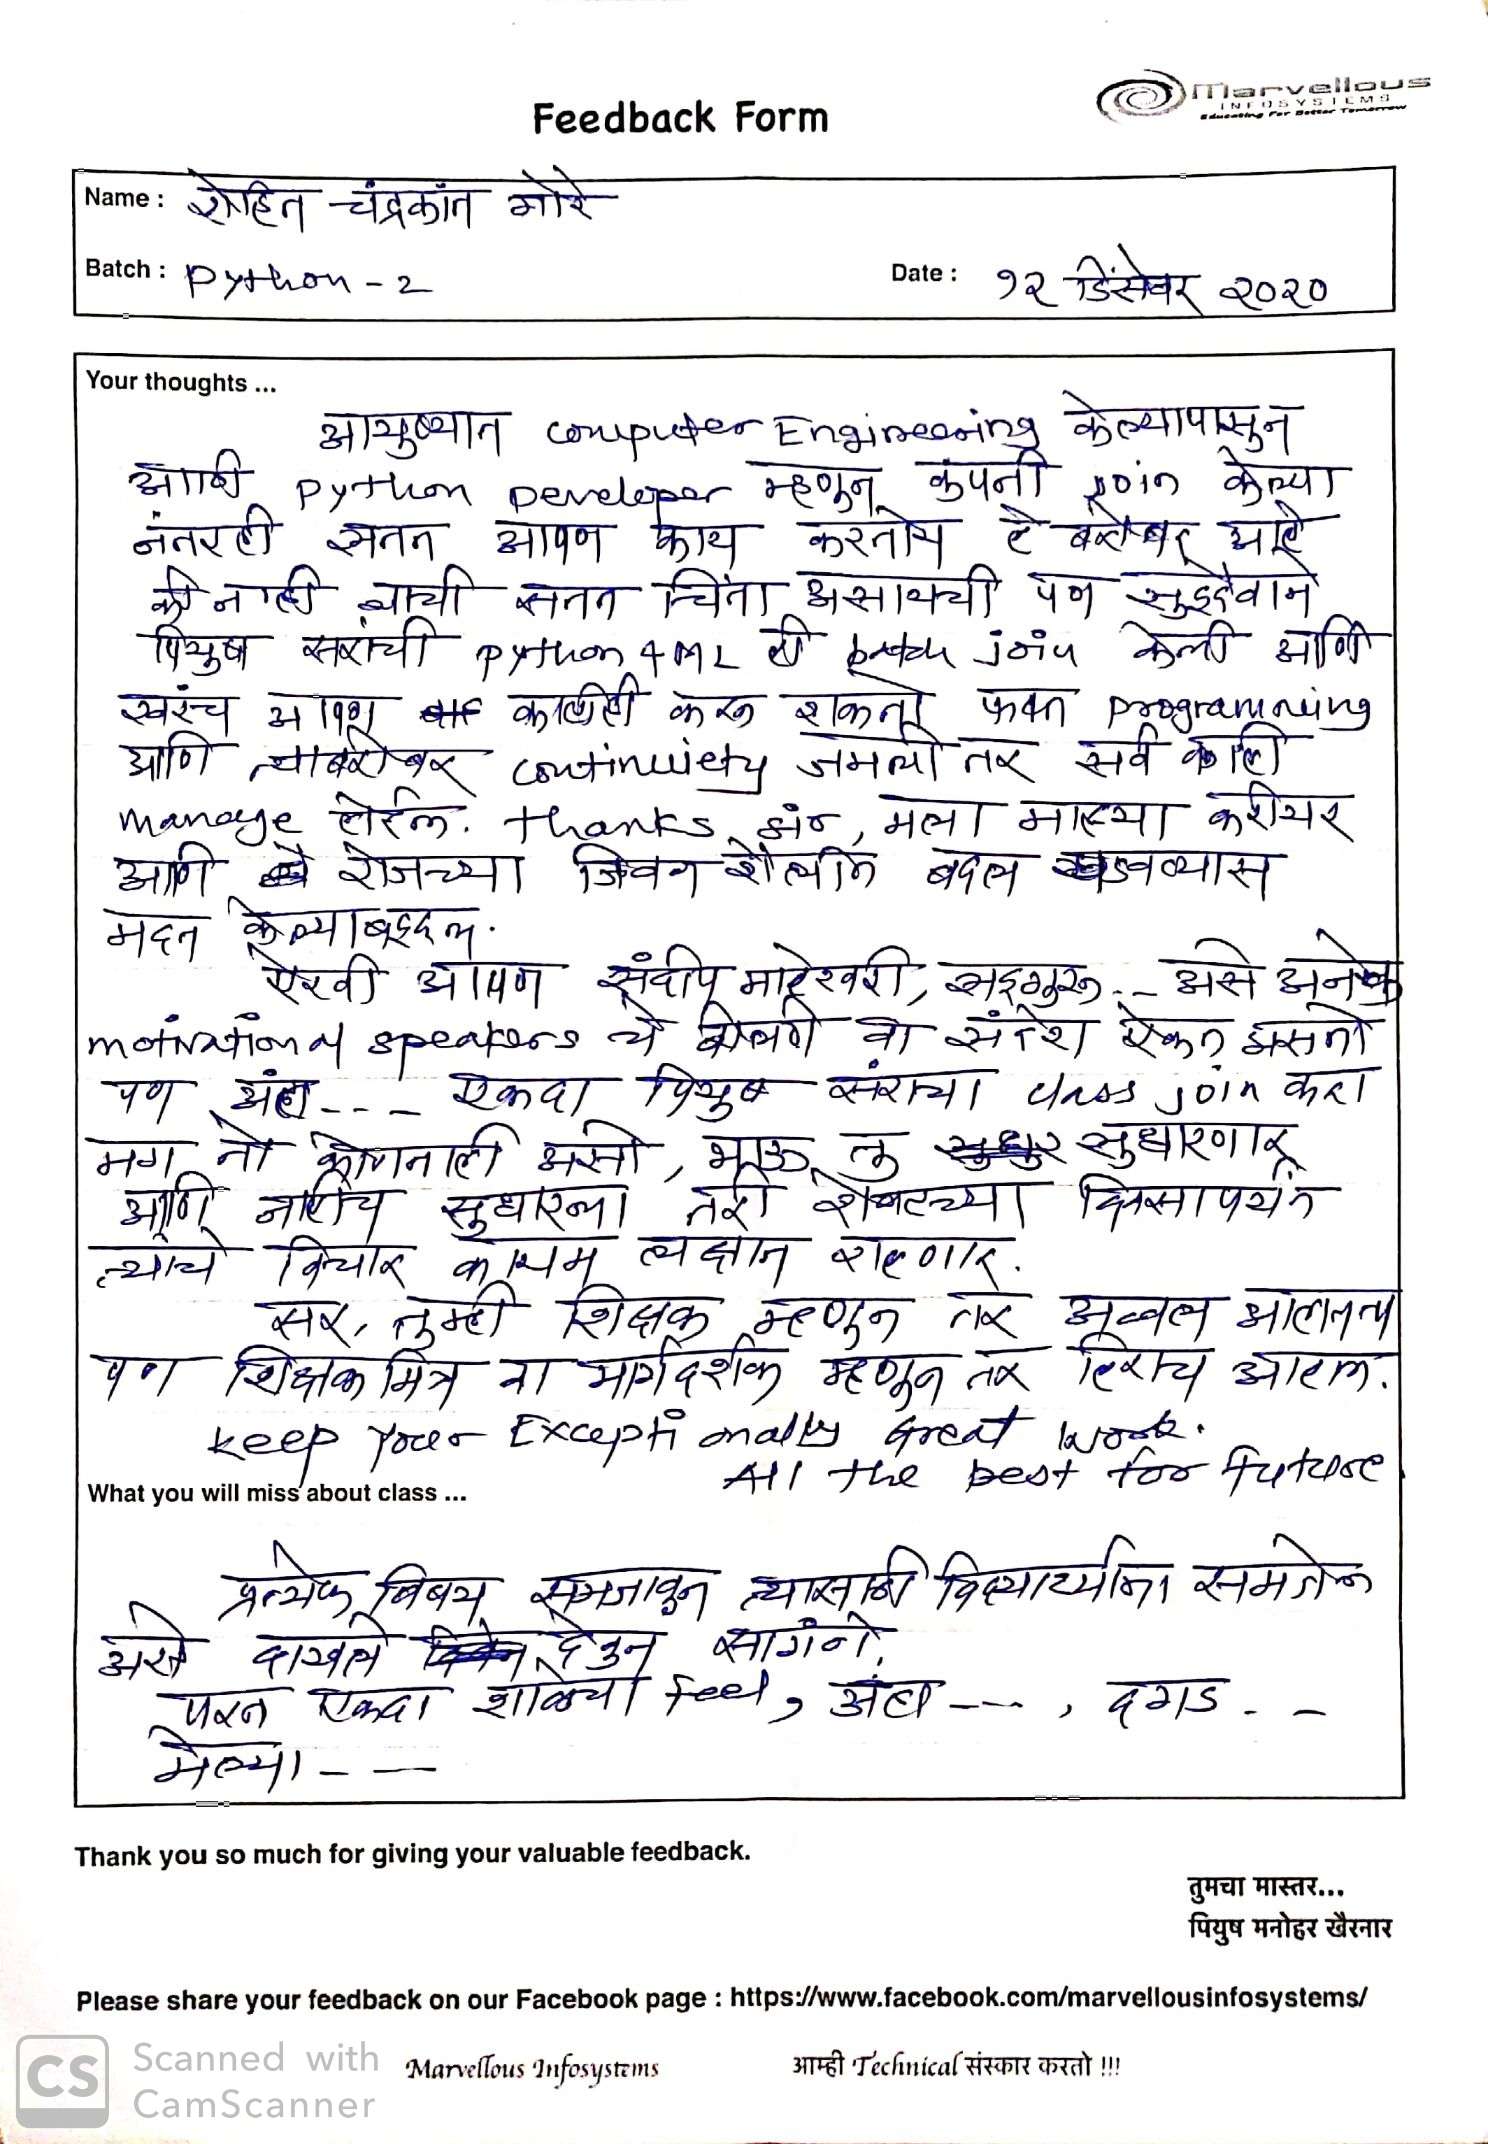 Marvellous
INFOSYSTEMS
Educating For Better Tomorrow
Feedback Form
Name : रोहित चंद्रकांत मोरे
Batch : Python - 2
Date : १२ डिसेंबर २०२०
Your thoughts ...
आयुष्यात computer Engineering केल्यापासुन
आणि python Developer म्हणुन कंपनी join केल्या
नंतरही सतत आपण काय करतोय ते बरोबर आहे
की नाही याची सतत चिंता असायची पण सुद्दैवाने
पियुष सरांची python 4 ML ची batch join केली आणि
खरंच आपण काहीही करू शकतो फक्त programming
आणि त्याबरोबर continuiety जमली तर सर्व काही
manage होईल. thanks सर, मला माझ्या करीयर
आणि रोजच्या जिवनशैलीत बदल घडवण्यास
मदत केल्याबद्दल.
ऐरवी आपण संदीप माहेश्वरी, सद्गुरू... असे अनेक
motivational speakers चे बोलणे वा संदेश ऐकत असतो
पण अंहा - - - एकदा पियुष सरांचा class join करा
मग तो कोणताही असो, भाऊ तु सुधारणार
आणि नाहीच सुधारला तरी शेवटच्या दिवसापर्यंत
त्यांचे विचार कायम लक्षात राहणार.
सर, तुम्ही शिक्षक म्हणुन तर अव्वल आहातच
पण शिक्षक मित्र वा मार्गदर्शक म्हणुन तर हिराच आहात.
keep your Exceptionally Great work.
All the best for future
What you will miss about class ...
प्रत्येक विषय समजावुन त्यासाठी विद्यार्थ्यांना समजेल
असे दाखले देवुन सांगणे.
परत एकदा शाळेचा feel, अंहा - - - , दगड . . -
मेल्या - - -
Thank you so much for giving your valuable feedback.
तुमचा मास्तर...
पियुष मनोहर खैरनार
Please share your feedback on our Facebook page : https://www.facebook.com/marvellousinfosystems/
CS Scanned with CamScanner
Marvellous Infosystems
आम्ही Technical संस्कार करतो !!!